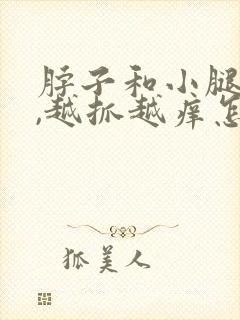 脖子和小腿
,越抓越痒怎
狐美人